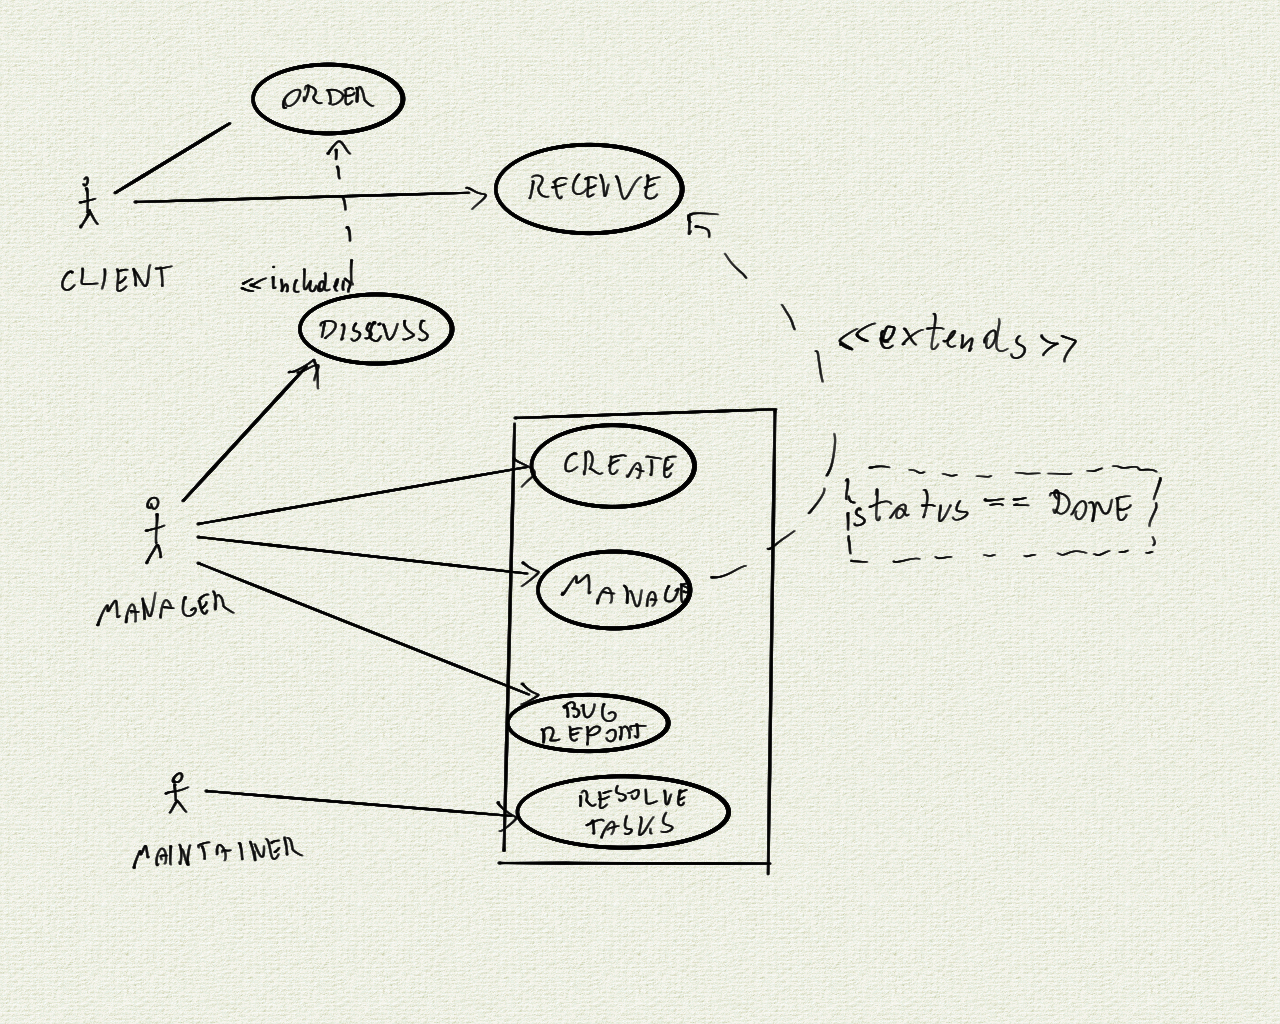 ORDER
RECEIVE
CLIENT
<<included
DISCUSS
<<extends>>
CREATE
status == DONE
MANAGE
MANAGER
BUG
REPORT
RESOLVE
TASKS
MAINTAINER